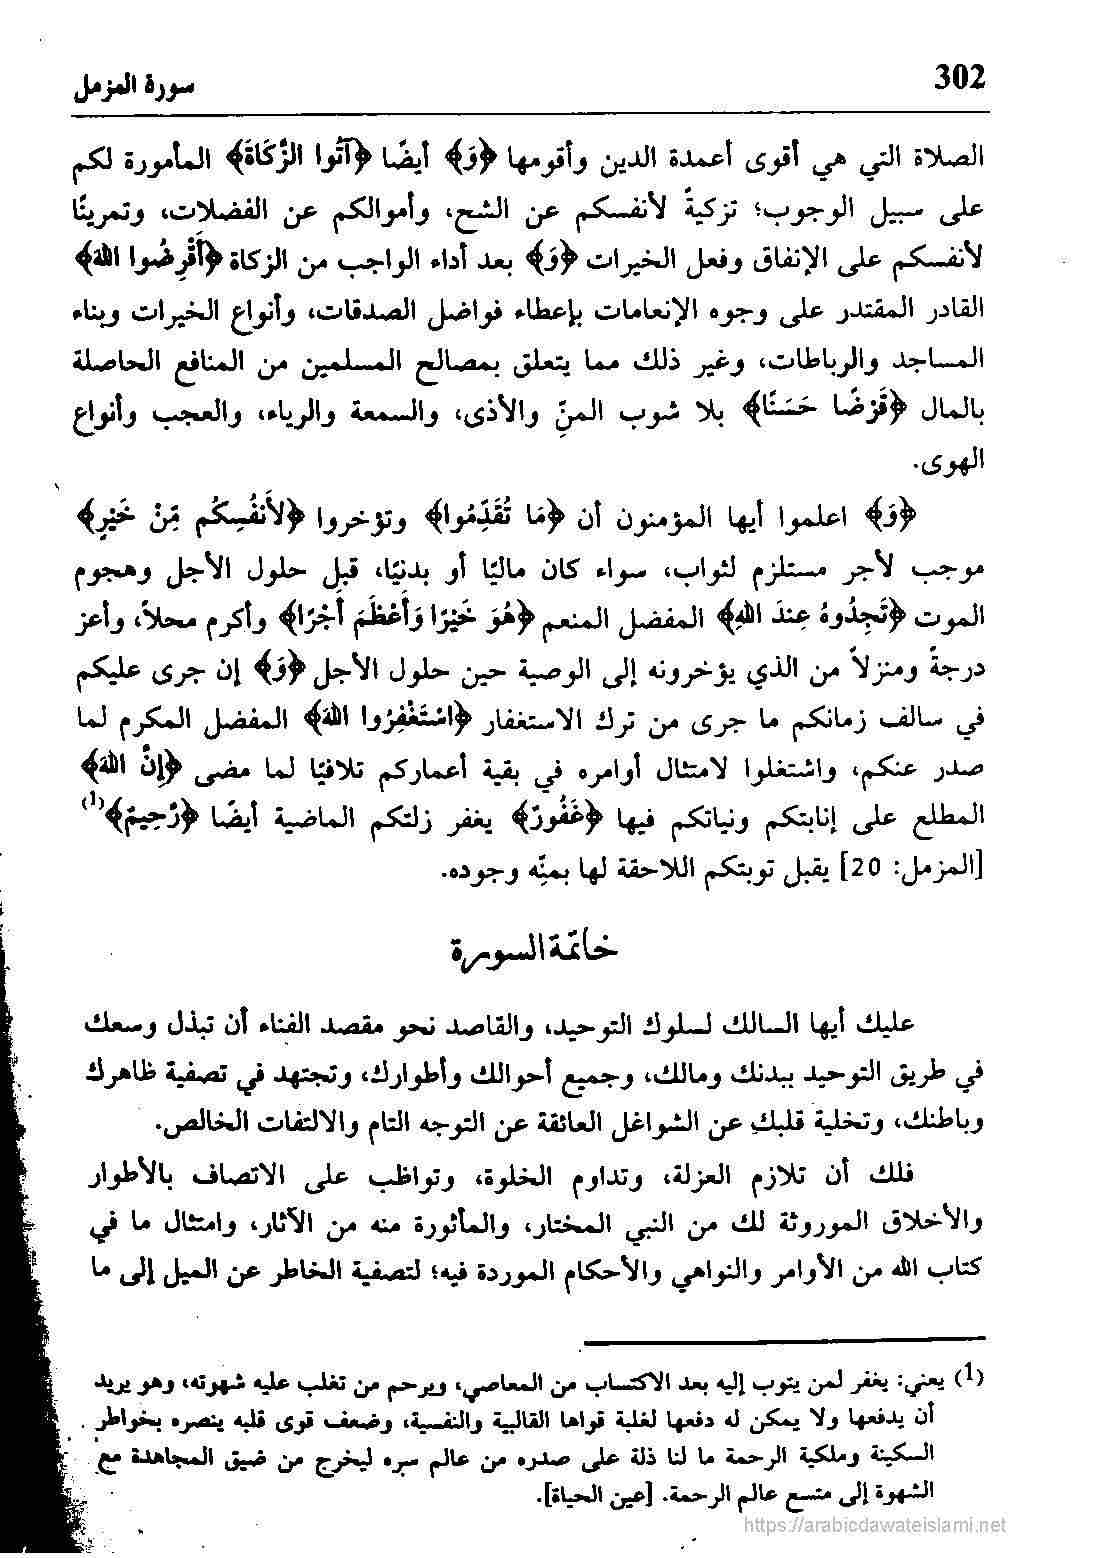 302
سورة المزمل
الصلاة التي هي أقوى أعمدة الدين وأقومها ﴿وَ﴾ أيضًا ﴿آتُوا الزَّكَاةَ﴾ المأمورة لكم
على سبيل الوجوب؛ تزكيةً لأنفسكم عن الشح، وأموالكم عن الفضلات، وتمرينًا
لأنفسكم على الإنفاق وفعل الخيرات ﴿وَ﴾ بعد أداء الواجب من الزكاة ﴿أَقْرِضُوا اللهَ﴾
القادر المقتدر على وجوه الإنعامات بإعطاء فواضل الصدقات، وأنواع الخيرات وبناء
المساجد والرباطات، وغير ذلك مما يتعلق بمصالح المسلمين من المنافع الحاصلة
بالمال ﴿قَرْضًا حَسَنًا﴾ بلا شوب المنِّ والأذى، والسمعة والرياء، والعجب وأنواع
الهوى.
﴿وَ﴾ اعلموا أيها المؤمنون أن ﴿مَا تُقَدِّمُوا﴾ وتؤخروا ﴿لأَنفُسِكُم مِّنْ خَيْرٍ﴾
موجب لأجر مستلزم لثواب، سواء كان ماليًا أو بدنيًا، قبل حلول الأجل وهجوم
الموت ﴿تَجِدُوهُ عِندَ اللهِ﴾ المفضل المنعم ﴿هُوَ خَيْرًا وَأَعْظَمَ أَجْرًا﴾ وأكرم محلاً، وأعز
درجةً ومنزلاً من الذي يؤخرونه إلى الوصية حين حلول الأجل ﴿وَ﴾ إن جرى عليكم
في سالف زمانكم ما جرى من ترك الاستغفار ﴿اسْتَغْفِرُوا اللهَ﴾ المفضل المكرم لما
صدر عنكم، واشتغلوا لامتثال أوامره في بقية أعماركم تلافيًا لما مضى ﴿إِنَّ اللهَ﴾
المطلع على إنابتكم ونياتكم فيها ﴿غَفُورٌ﴾ يغفر زلتكم الماضية أيضًا ﴿رَّحِيمٌ﴾(1)
[المزمل: 20] يقبل توبتكم اللاحقة لها بمنِّه وجوده.
خاتمة السورة
عليك أيها السالك لسلوك التوحيد، والقاصد نحو مقصد الفناء أن تبذل وسعك
في طريق التوحيد ببدنك ومالك، وجميع أحوالك وأطوارك، وتجتهد في تصفية ظاهرك
وباطنك، وتخلية قلبك عن الشواغل العائقة عن التوجه التام والالتفات الخالص.
فلك أن تلازم العزلة، وتداوم الخلوة، وتواظب على الاتصاف بالأطوار
والأخلاق الموروثة لك من النبي المختار، والمأثورة منه من الآثار، وامتثال ما في
كتاب الله من الأوامر والنواهي والأحكام الموردة فيه؛ لتصفية الخاطر عن الميل إلى ما
(1) يعني: يغفر لمن يتوب إليه بعد الاكتساب من المعاصي، ويرحم من تغلب عليه شهوته، وهو يريد
أن يدفعها ولا يمكن له دفعها لغلبة قواها القالبية والنفسية، وضعف قوى قلبه ينصره بخواطر
السكينة وملكية الرحمة ما لنا ذلة على صدره من عالم سره ليخرج من ضيق المجاهدة مع
الشهوة إلى متسع عالم الرحمة. [عين الحياة].
https://arabicdawateislami.net